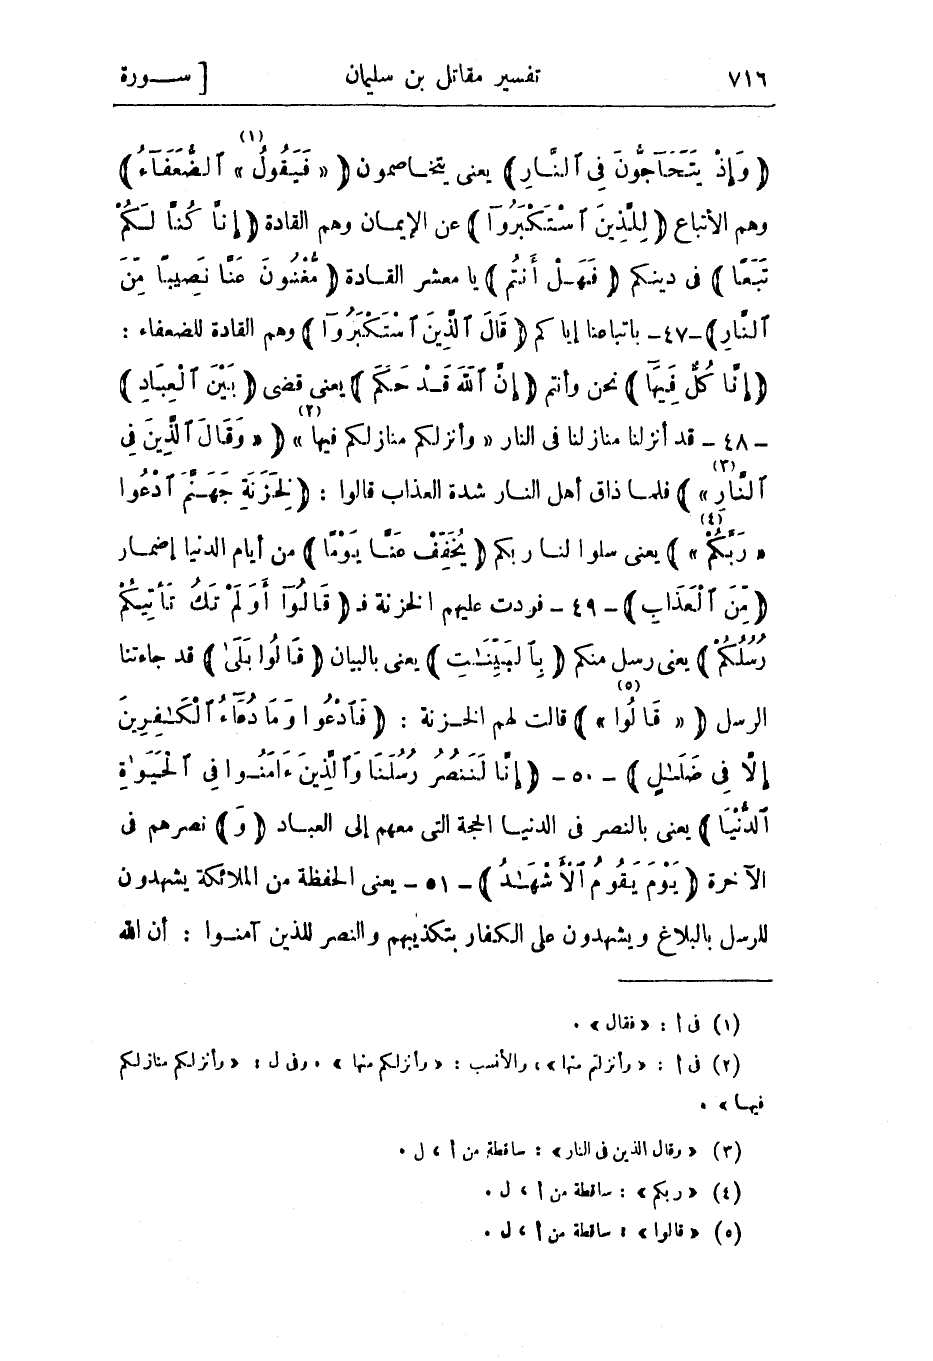 ٧١٦ تفسير مقاتل بن سليمان [ ســورة
(وَإِذْ يَتَحَآجُّونَ فِى ٱلنَّارِ) يعنى يتخاصمون ( « فَيَقُولُ (١) » ٱلضُّعَفَآءُ)
وهم الأتباع (لِلَّذِينَ ٱسْتَكْبَرُوٓا) عن الإيمان وهم القادة (إِنَّا كُنَّا لَكُمْ
تَبَعًا) فى دينكم (فَهَلْ أَنتُم) يا معشر القادة (مُّغْنُونَ عَنَّا نَصِيبًا مِّنَ
ٱلنَّارِ) -٤٧- باتباعنا إياكم (قَالَ ٱلَّذِينَ ٱسْتَكْبَرُوٓا) وهم القادة للضعفاء :
(إِنَّا كُلٌّ فِيهَآ) نحن وأنتم (إِنَّ ٱللَّهَ قَدْ حَكَمَ) يعنى قضى (بَيْنَ ٱلْعِبَادِ)
- ٤٨ - قد أنزلنا منازلنا فى النار « وأنزلكم منازلكم فيها (٢) » ( « وَقَالَ ٱلَّذِينَ فِى
ٱلنَّارِ (٣) » ) فلما ذاق أهل النار شدة العذاب قالوا : (لِخَزَنَةِ جَهَنَّمَ ٱدْعُوا
« رَبَّكُمْ (٤) » ) يعنى سلوا لنا ربكم (يُخَفِّفْ عَنَّا يَوْمًا) من أيام الدنيا إضمار
(مِّنَ ٱلْعَذَابِ) - ٤٩ - فردت عليهم الخزنة فـ (قَالُوٓا أَوَلَمْ تَكُ تَأْتِيكُمْ
رُسُلُكُمْ) يعنى رسل منكم (بِٱلْبَيِّنَـٰتِ) يعنى بالبيان (قَالُوا بَلَىٰ) قد جاءتنا
الرسل ( « قَالُوا (٥) » ) قالت لهم الخزنة : (فَٱدْعُوا وَمَا دُعَٰٓؤُا ٱلْكَـٰفِرِينَ
إِلَّا فِى ضَلَـٰلٍ) - ٥٠ - (إِنَّا لَنَنصُرُ رُسُلَنَا وَٱلَّذِينَ ءَامَنُوا فِى ٱلْحَيَوٰةِ
ٱلدُّنْيَا) يعنى بالنصر فى الدنيا الحجة التى معهم إلى العباد (وَ) نصرهم فى
الآخرة (يَوْمَ يَقُومُ ٱلْأَشْهَـٰدُ) - ٥١ - يعنى الحفظة من الملائكة يشهدون
للرسل بالبلاغ ويشهدون على الكفار بتكذيبهم والنصر للذين آمنوا : أن الله
(١) فى أ : «فقال» .
(٢) فى أ : «وأنزلتم منها»، والأنسب : «وأنزلكم منها» . وفى ل : «وأنزلكم منازلكم
فيها» .
(٣) «وقال الذين فى النار» : ساقطة من أ ، ل .
(٤) «ربكم» : ساقطة من أ ، ل .
(٥) «قالوا» : ساقطة من أ ، ل .